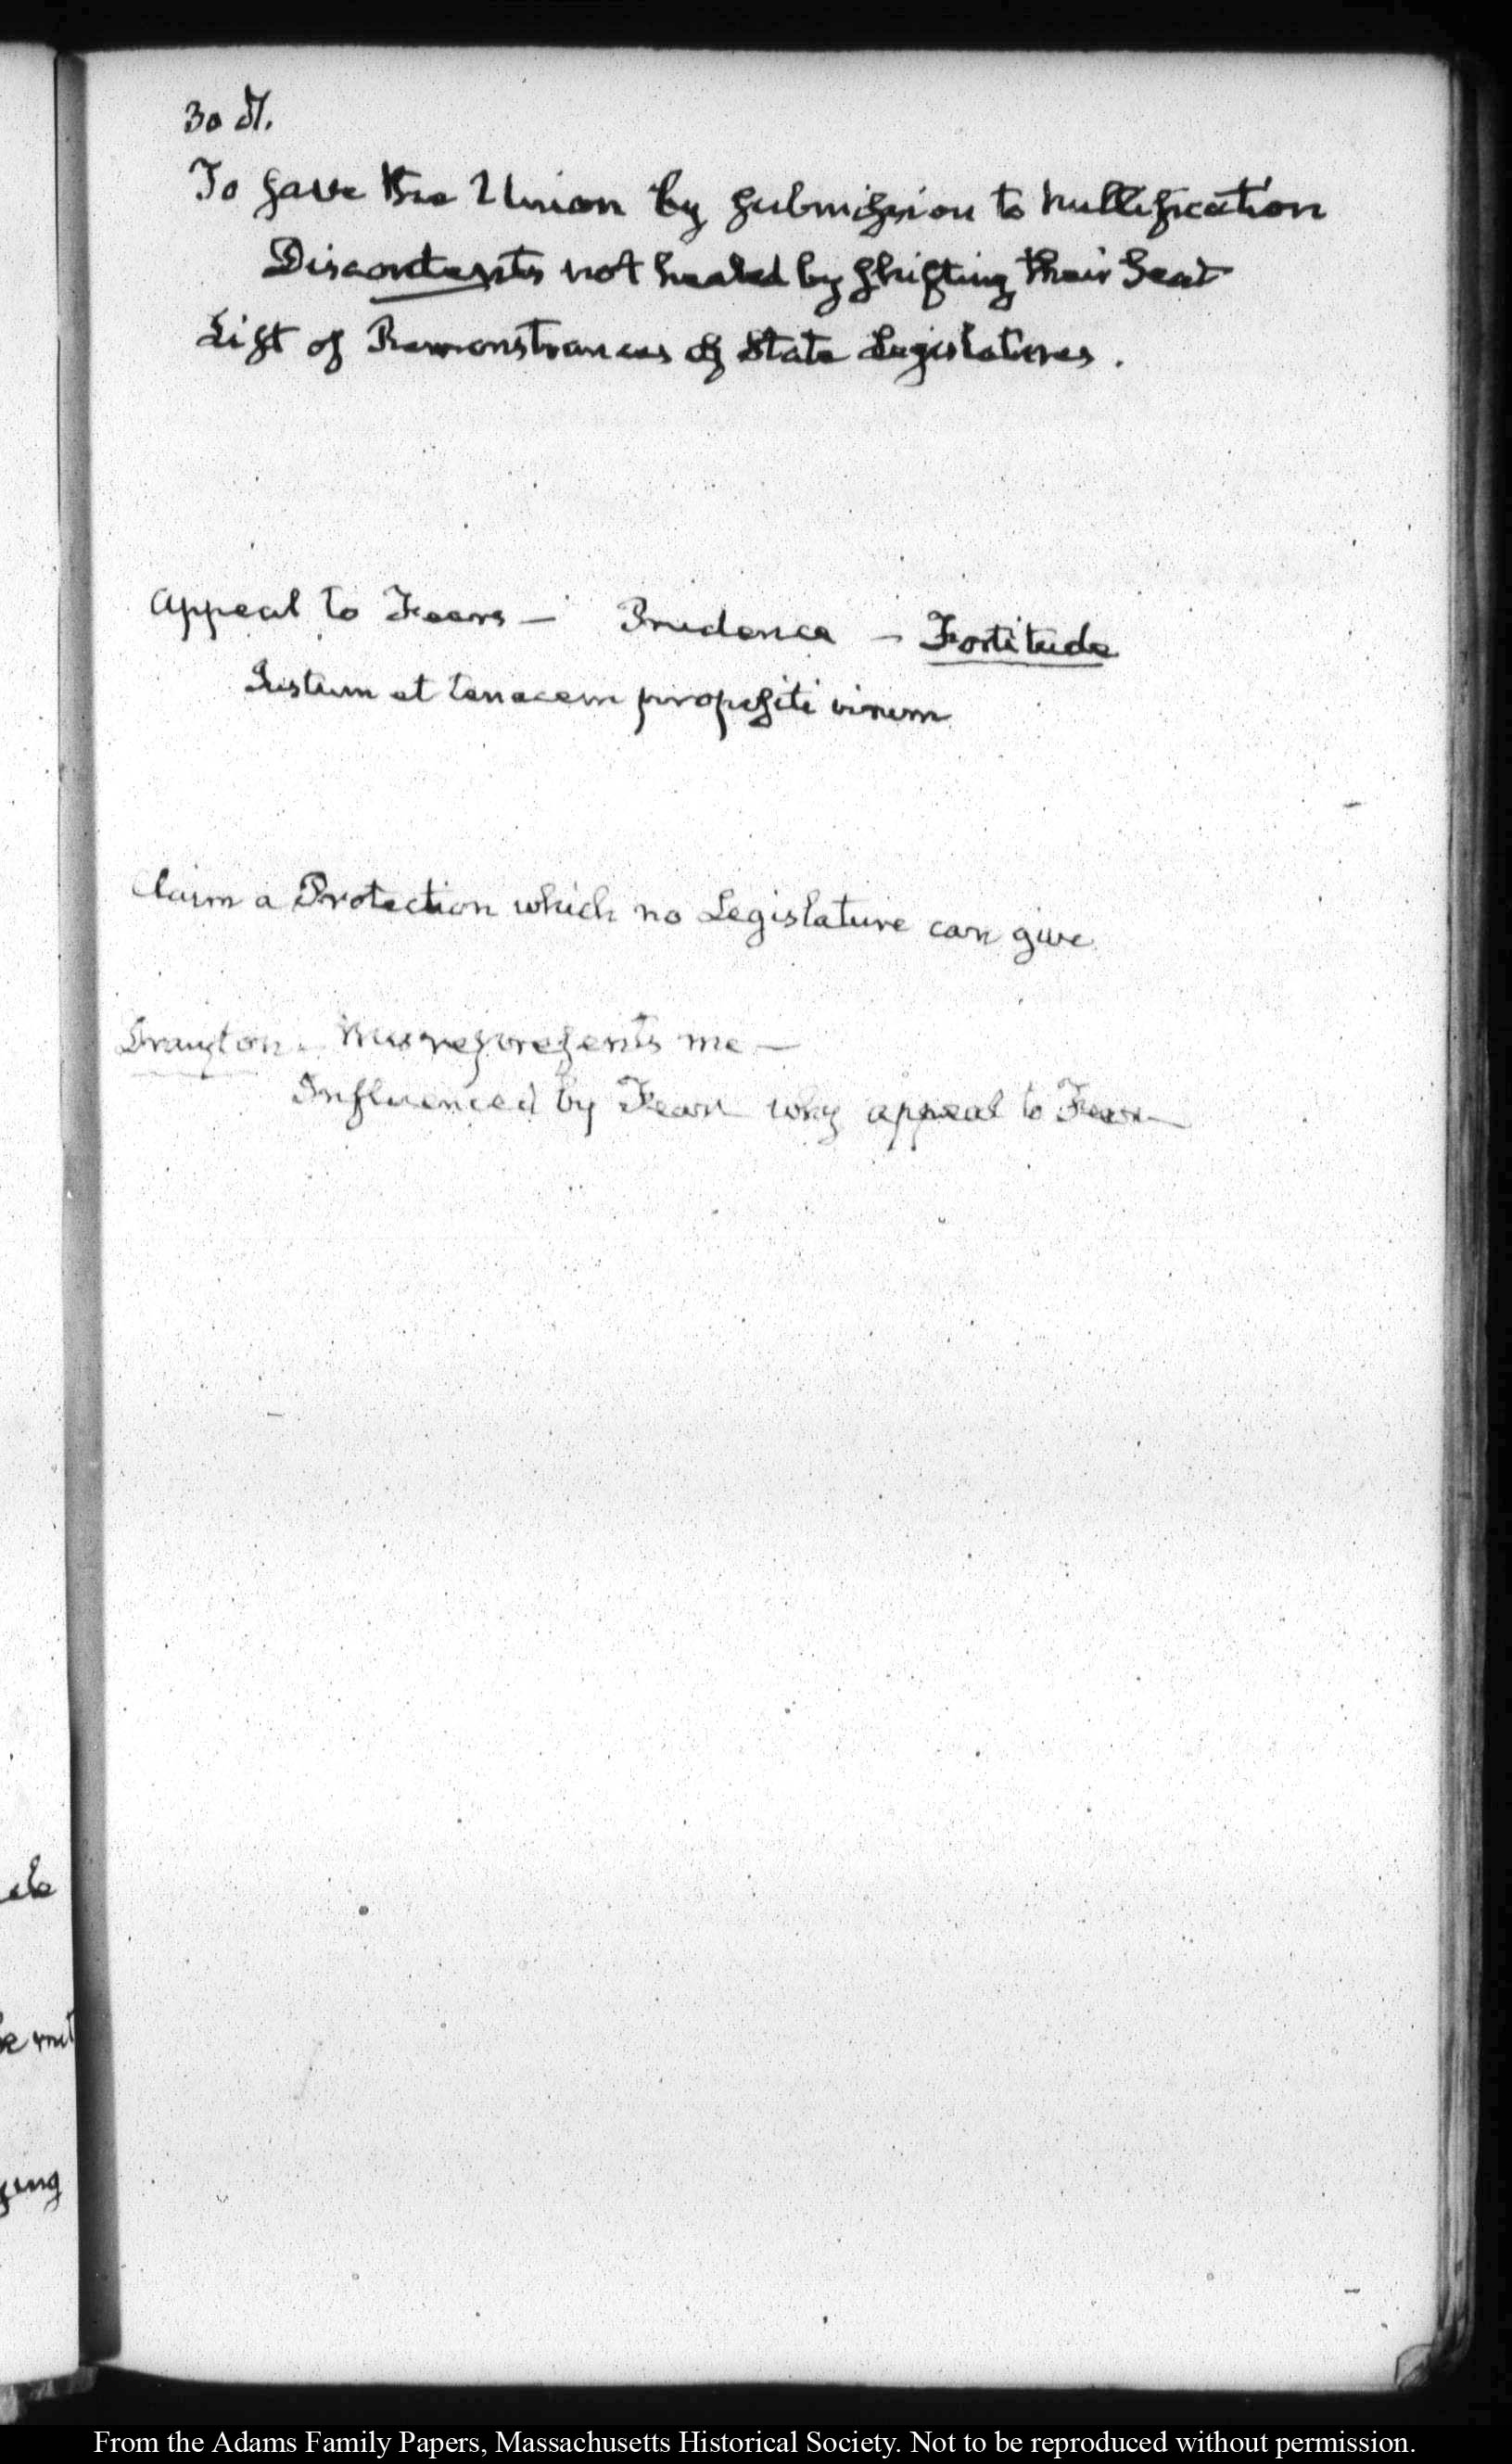 30
To save the Union by submission to nullification
Discontents not healed by shifting their Seat
List of Remonstrances of State Legislatures.
Appeal to Fears — Prudence — Fortitude
Justum et tenacem propositi virum
Claim a Protection which no Legislature can give
Drayton. Misrepresents me —
Influenced by Fear why appeal to Fear
ing
From the Adams Family Papers, Massachusetts Historical Society. Not to be reproduced without permission.